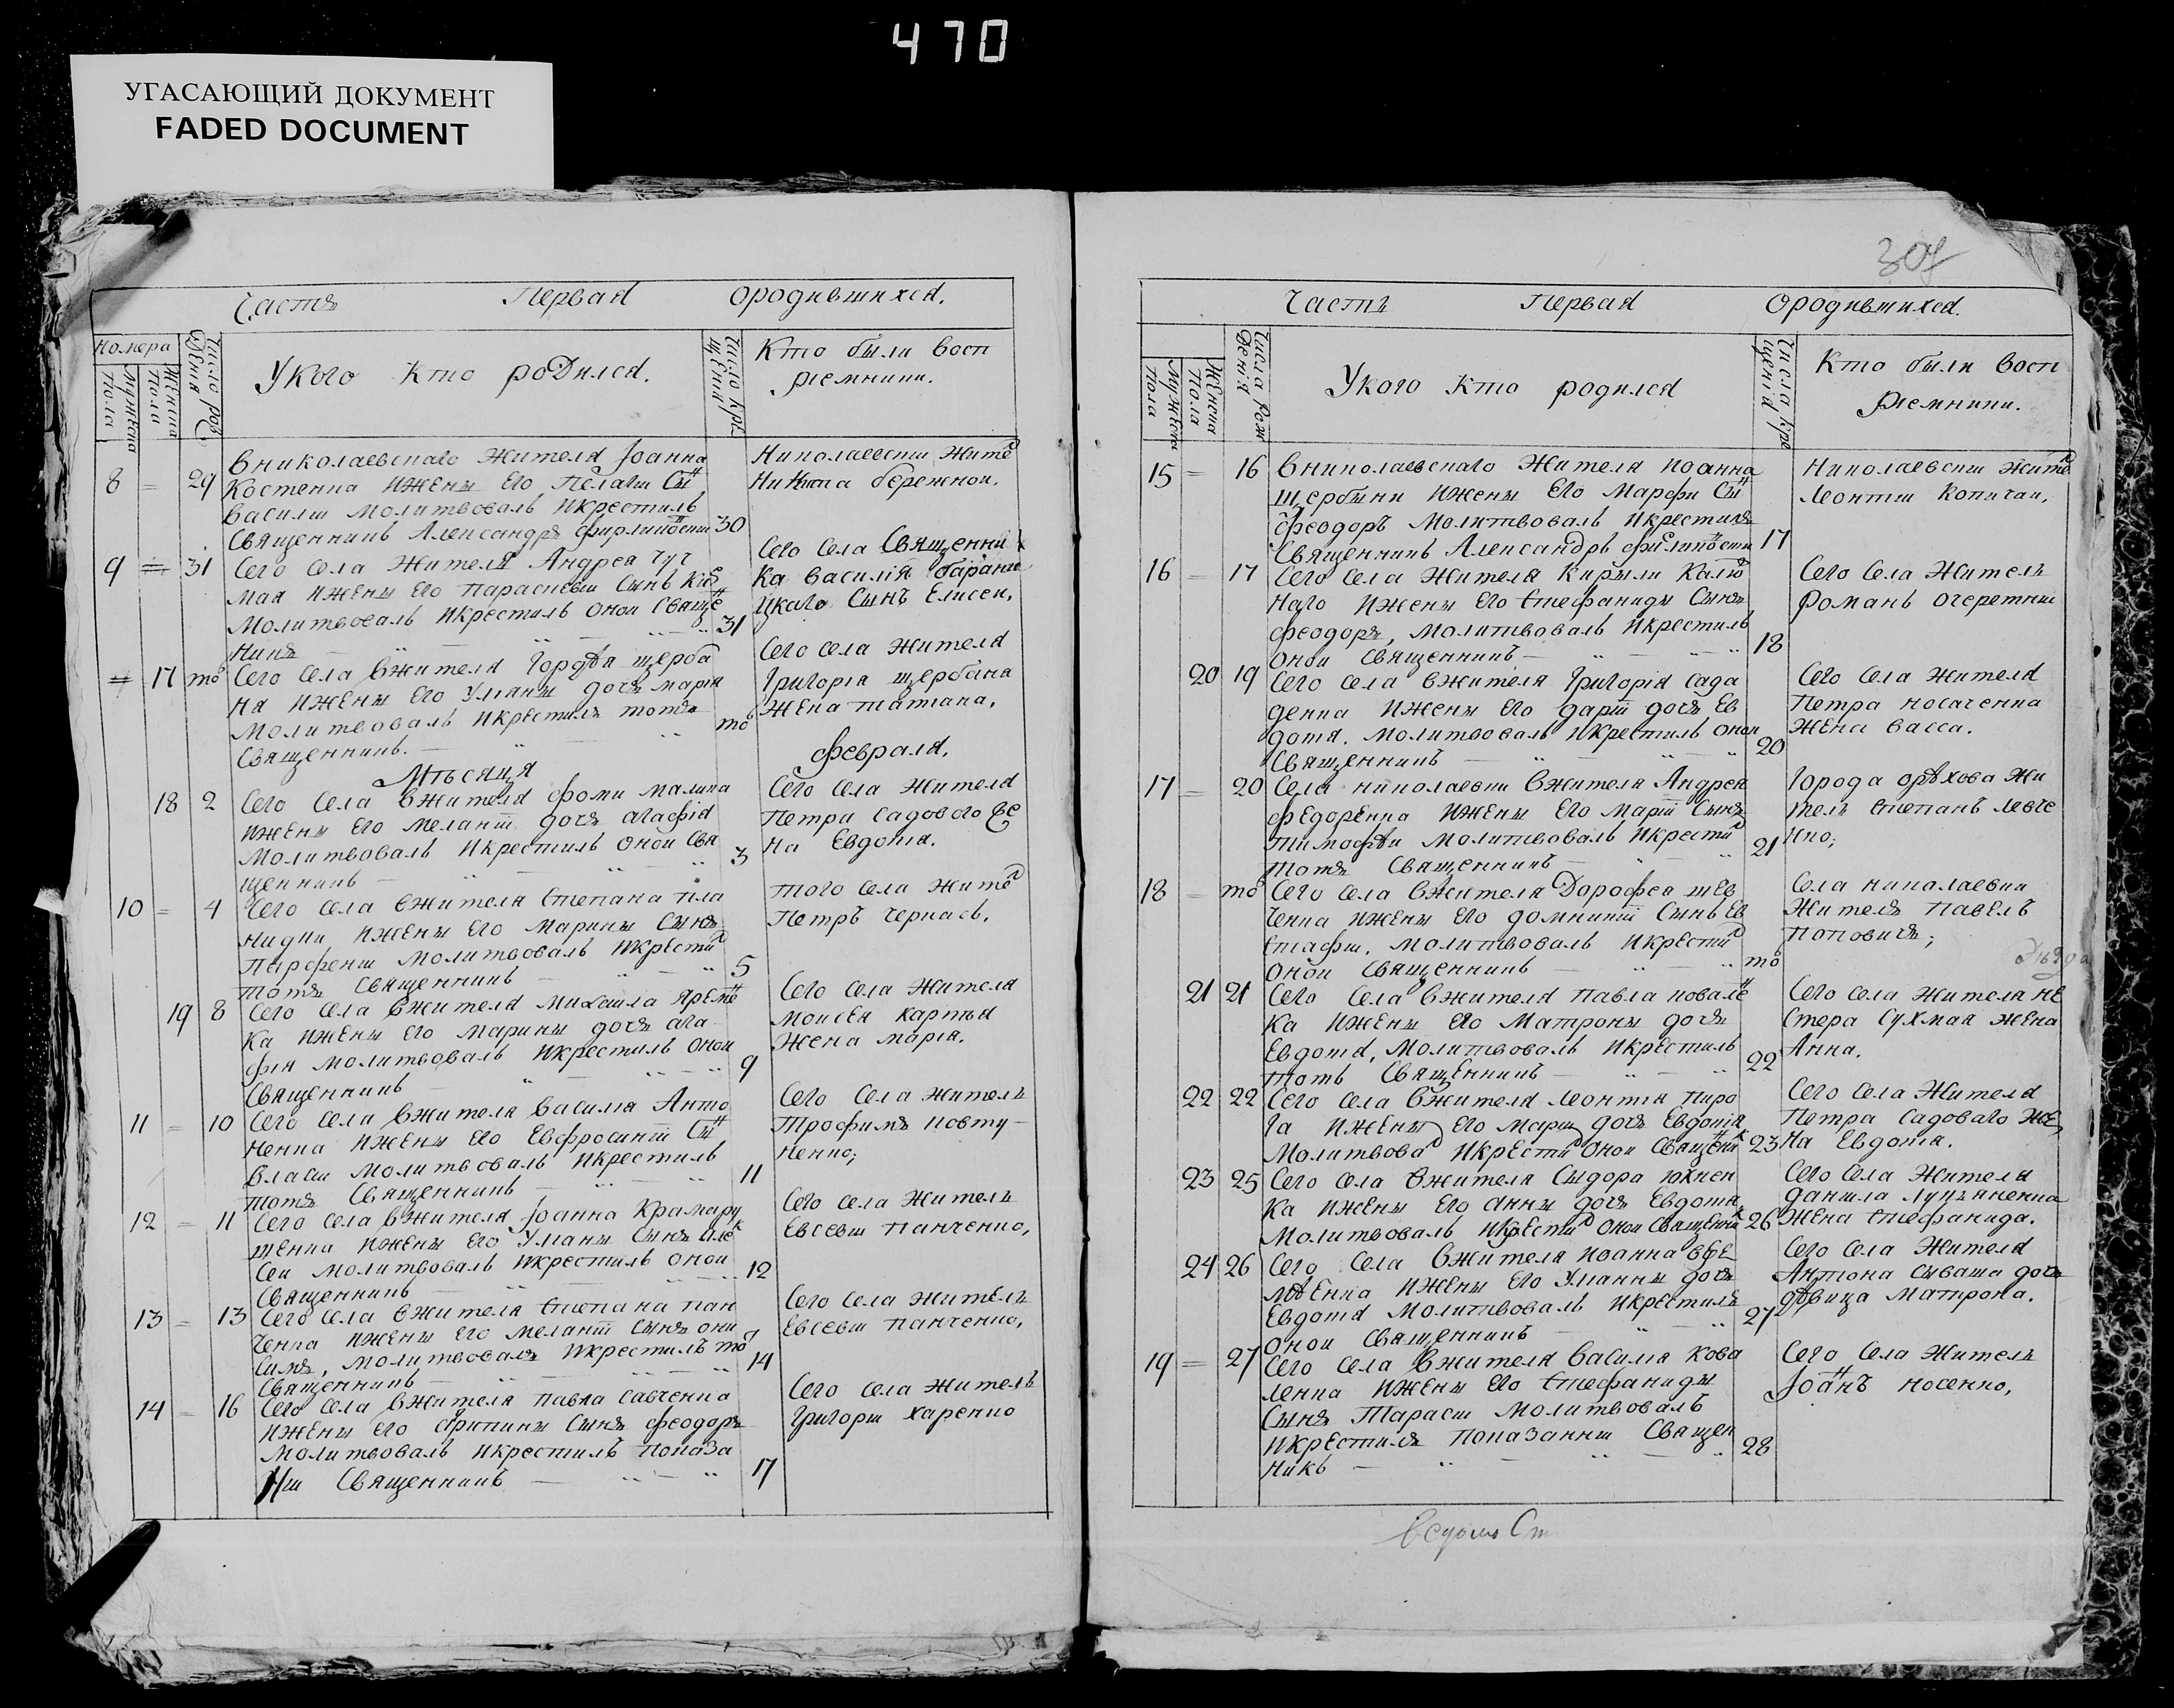 470
УГАСАЮЩИЙ ДОКУМЕНТ
FADED DOCUMENT
Часть Первая ородившихся.
Номера
Мужеска Пола
Женска Пола
Число рож дения
Укого кто родился.
Число кре щения
Кто были восп
рiемники.
8 = 29 Вниколаевскаго жителя Iоанна
Костенка ижены Его Пелагии Сынъ
василии молитвовалъ икрестилъ
Священникъ Александръ 30
Николаевскии жите
Никита бережнои.
9 = 31 Сего села жителя Андрея
ижены Его Параскевии Сынъ
молитвовалъ икрестилъ онои Свяще
никъ 31
Сего села Священни
ка василiя
Сынъ Елисеи.
= 17 то Сего села вжителя Гордѣя щерба
ня ижены Его Улianы дочь марiя
молитвовалъ икрестилъ тотъ
Священникъ. то
Сего села жителя
Григорiя щербаня
жена татiана.
Мѣсяця февраля.
18 2 Сего села вжителя фомы малика
ижены Его меланiи дочь агафiя
молитвовалъ икрестилъ онои Свя
щенникъ 3
Сего села жителя
Петра садового же
на Евдотiя.
10 = 4 Сего села вжителя степана
ижены Его марины Сынъ
Парфении молитвовалъ икрести
тотъ священникъ 5
того села жите
Петръ чернась.
19 8 Сего села вжителя михаила Яреме
ка ижены Его марины дочь ага
фия молитвовалъ икрестилъ онои
Священникъ 9
Сего села жителя
моисея карпы
жена марiя.
11 = 10 Сего села вжителя василия Анто
ненка ижены Его Евфросинiи Сы
власии молитвовалъ икрестилъ
тотъ Священникъ 11
Сего села житель
Трофимъ ковту
ненко;
12 = 11 Сего села вжителя Iоанна Крамару
шенка ижены Его Улiаны Сынъ Але
сеи молитвовалъ икрестилъ онои
Священникъ 12
Сего села житель
Евсевии панченко,
13 = 13 Сего села вжителя степана пан
ченка ижены Его меланiи Сынъ они
симъ, молитвовалъ икрестилъ то
Священникъ 14
Сего села житель
Евсевии панченко,
14 = 16 Сего села вжителя павла савченка
ижены Его агрипины Сынъ феодоръ
молитвовалъ икрестилъ показа
нии Священникъ 17
Сего села житель
Григории харенко
307
Часть Первая ородившихся.
Мужеска Пола
Женска Пола
Числа рож дения
Укого кто родился
Числа кре щения
Кто были восп
рiемники.
15 = 16 Вниколаевскаго жителя иоанна
Щербыни ижены Его марфы Сы
феодоръ молитвовалъ икрестилъ
Священникъ Александръ 17
Николаевскии жите
Леонтии копичаи,
16 = 17 Сего села жителя Кирыли Калю
наго ижены Его стефаниды Сынъ
феодоръ, молитвовалъ икрестилъ
онои Священникъ 18
Сего села житель
романъ очеретнии
20 19 Сего села вжителя Григорiя сада
денка ижены Его дарiи дочь Ев
дотiя. молитвовалъ икрестилъ онои
Священникъ 20
Сего села жителя
Петра носаченка
жена васса.
17 = 20 Села николаевки вжителя Андрея
федоренка ижены Его марiи Сынъ
тимофѣи молитвовалъ икрести
тотъ Священникъ 21
Города орѣхова жи
тель степанъ левче
нко;
18 = то Сего села вжителя Дорофея шев
ченка ижены Его домникiи Сынъ Ев
стафии, молитвовалъ икрести
онои Священникъ то
Села николаевки
жителя павелъ
поповичъ;
21 21 Сего села вжителя павла ковале
ка ижены Его матроны дочь
Евдотiя, молитвовалъ икрестилъ
тотъ Священникъ 22
Сего села жителя не
стера Сухмая жена
Анна.
22 22 Сего села вжителя леонтия пиро
га ижены Его марии дочь Евдотiя
молитвова икрести онои Священик 23
Сего села жителя
Петра садоваго же
на Евдотiя.
23 25 Сего села вжителя Сыдора юхнен
ка ижены Его анны дочь Евдотiя
молитвовалъ икрести онои Священик 26
Сего села жителя
данiила лукъяненка
жена стефанида.
24 26 Сего села вжителя иоанна
ижены Его Улiанны дочь
Евдотiя молитвовалъ икрестилъ
онои Священникъ 27
Сего села жителя
Антона сиваша дочь
дѣвица матрона.
19 = 27 Сего села вжителя василия кова
ленка ижены Его стефаниды
Сынъ Тарасии молитвовалъ
икрестилъ показаннии Священ
никъ 28
Сего села житель
Iоанъ косенко,